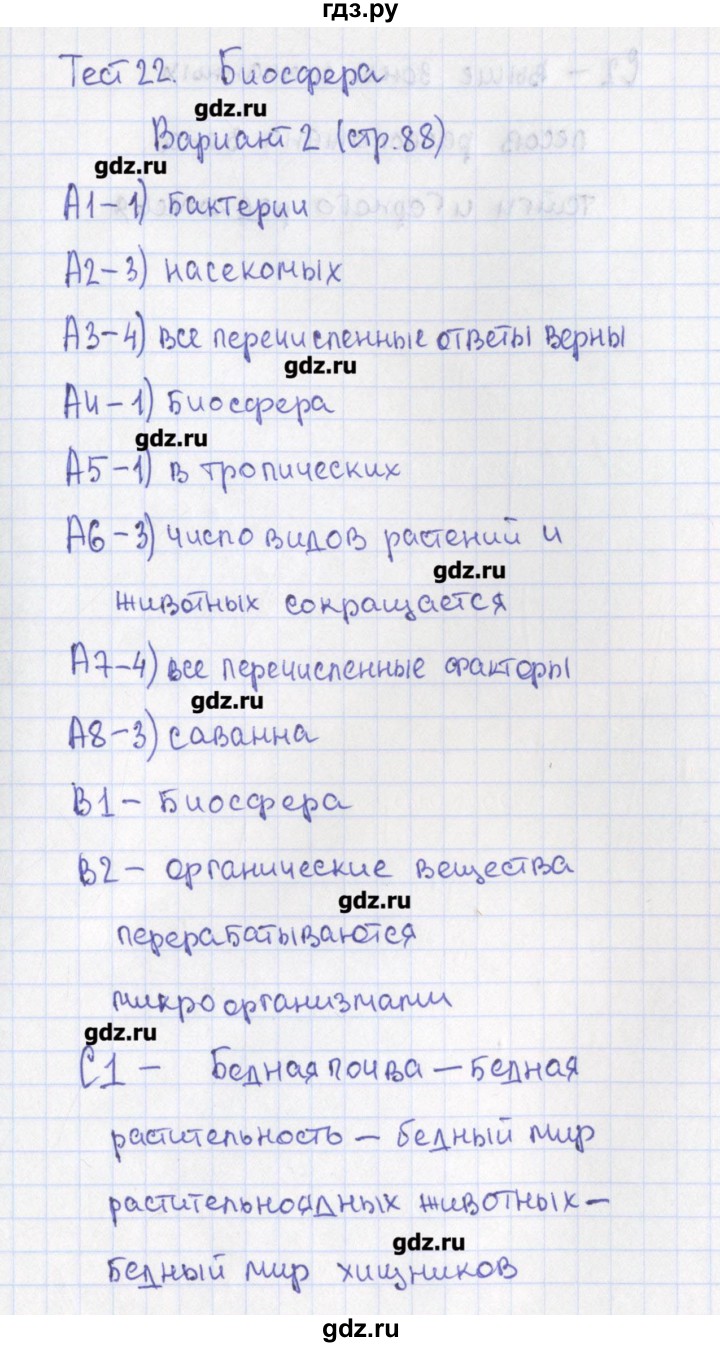 гдз.ру
Тест 22. Биосфера
gdz.ru
Вариант 2 (стр.88)
gdz.ru
А1-1) Бактерии
А2-3) насекомых
А3-4) все перечисленные ответы верны
gdz.ru
А4-1) Биосфера
gdz.ru
А5-1) в тропических
А6-3) число видов растений и
gdz.ru
животных сокращается
А7-4) все перечисленные факторы
gdz.ru
А8-3) саванна
В1 - Биосфера
В2 - органические вещества
gdz.ru
перерабатываются
микроорганизмами
gdz.ru
С1 - Бедная почва - бедная
растительность - бедный мир
растительноядных животных -
gdz.ru
бедный мир хищников
gdz.ru